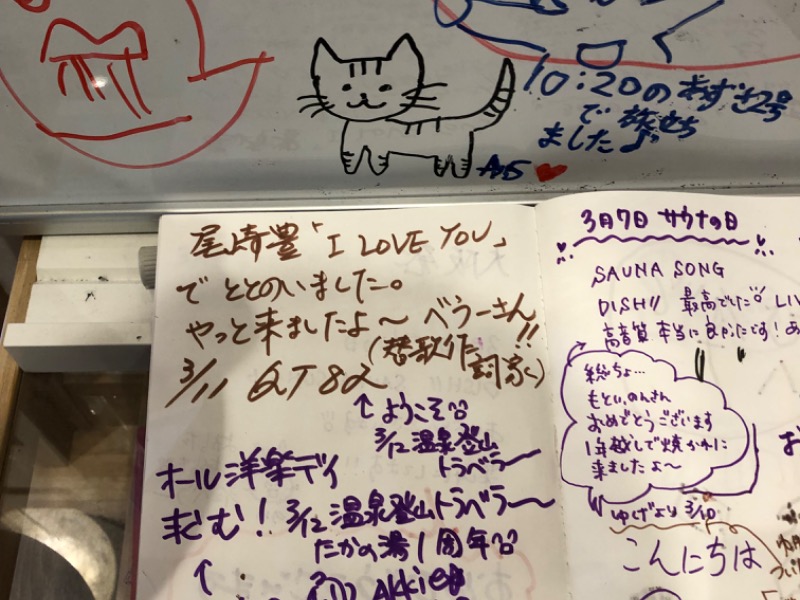 10:20のあずさ2号
で旅立ち
ました♪
尾崎豊「I LOVE YOU」
でととのいました。
やっと来ましたよ〜 べうーさん!!
(替歌作詞家)
3/11 GT82
↑ようこそ
3/12 温泉登山
トラベラー
オール洋楽デイ
求む! 3/12 温泉登山トラベラー
たかの湯1周年
↑
3月7日 サウナの日
SAUNA SONG
DISH// 最高でした
高音質 本当に良かったです!
総ちょ…
もといのんさん
おめでとうございます
1年越しで焼かれに
来ましたよ〜
ゆげより 3/10
こんにちは